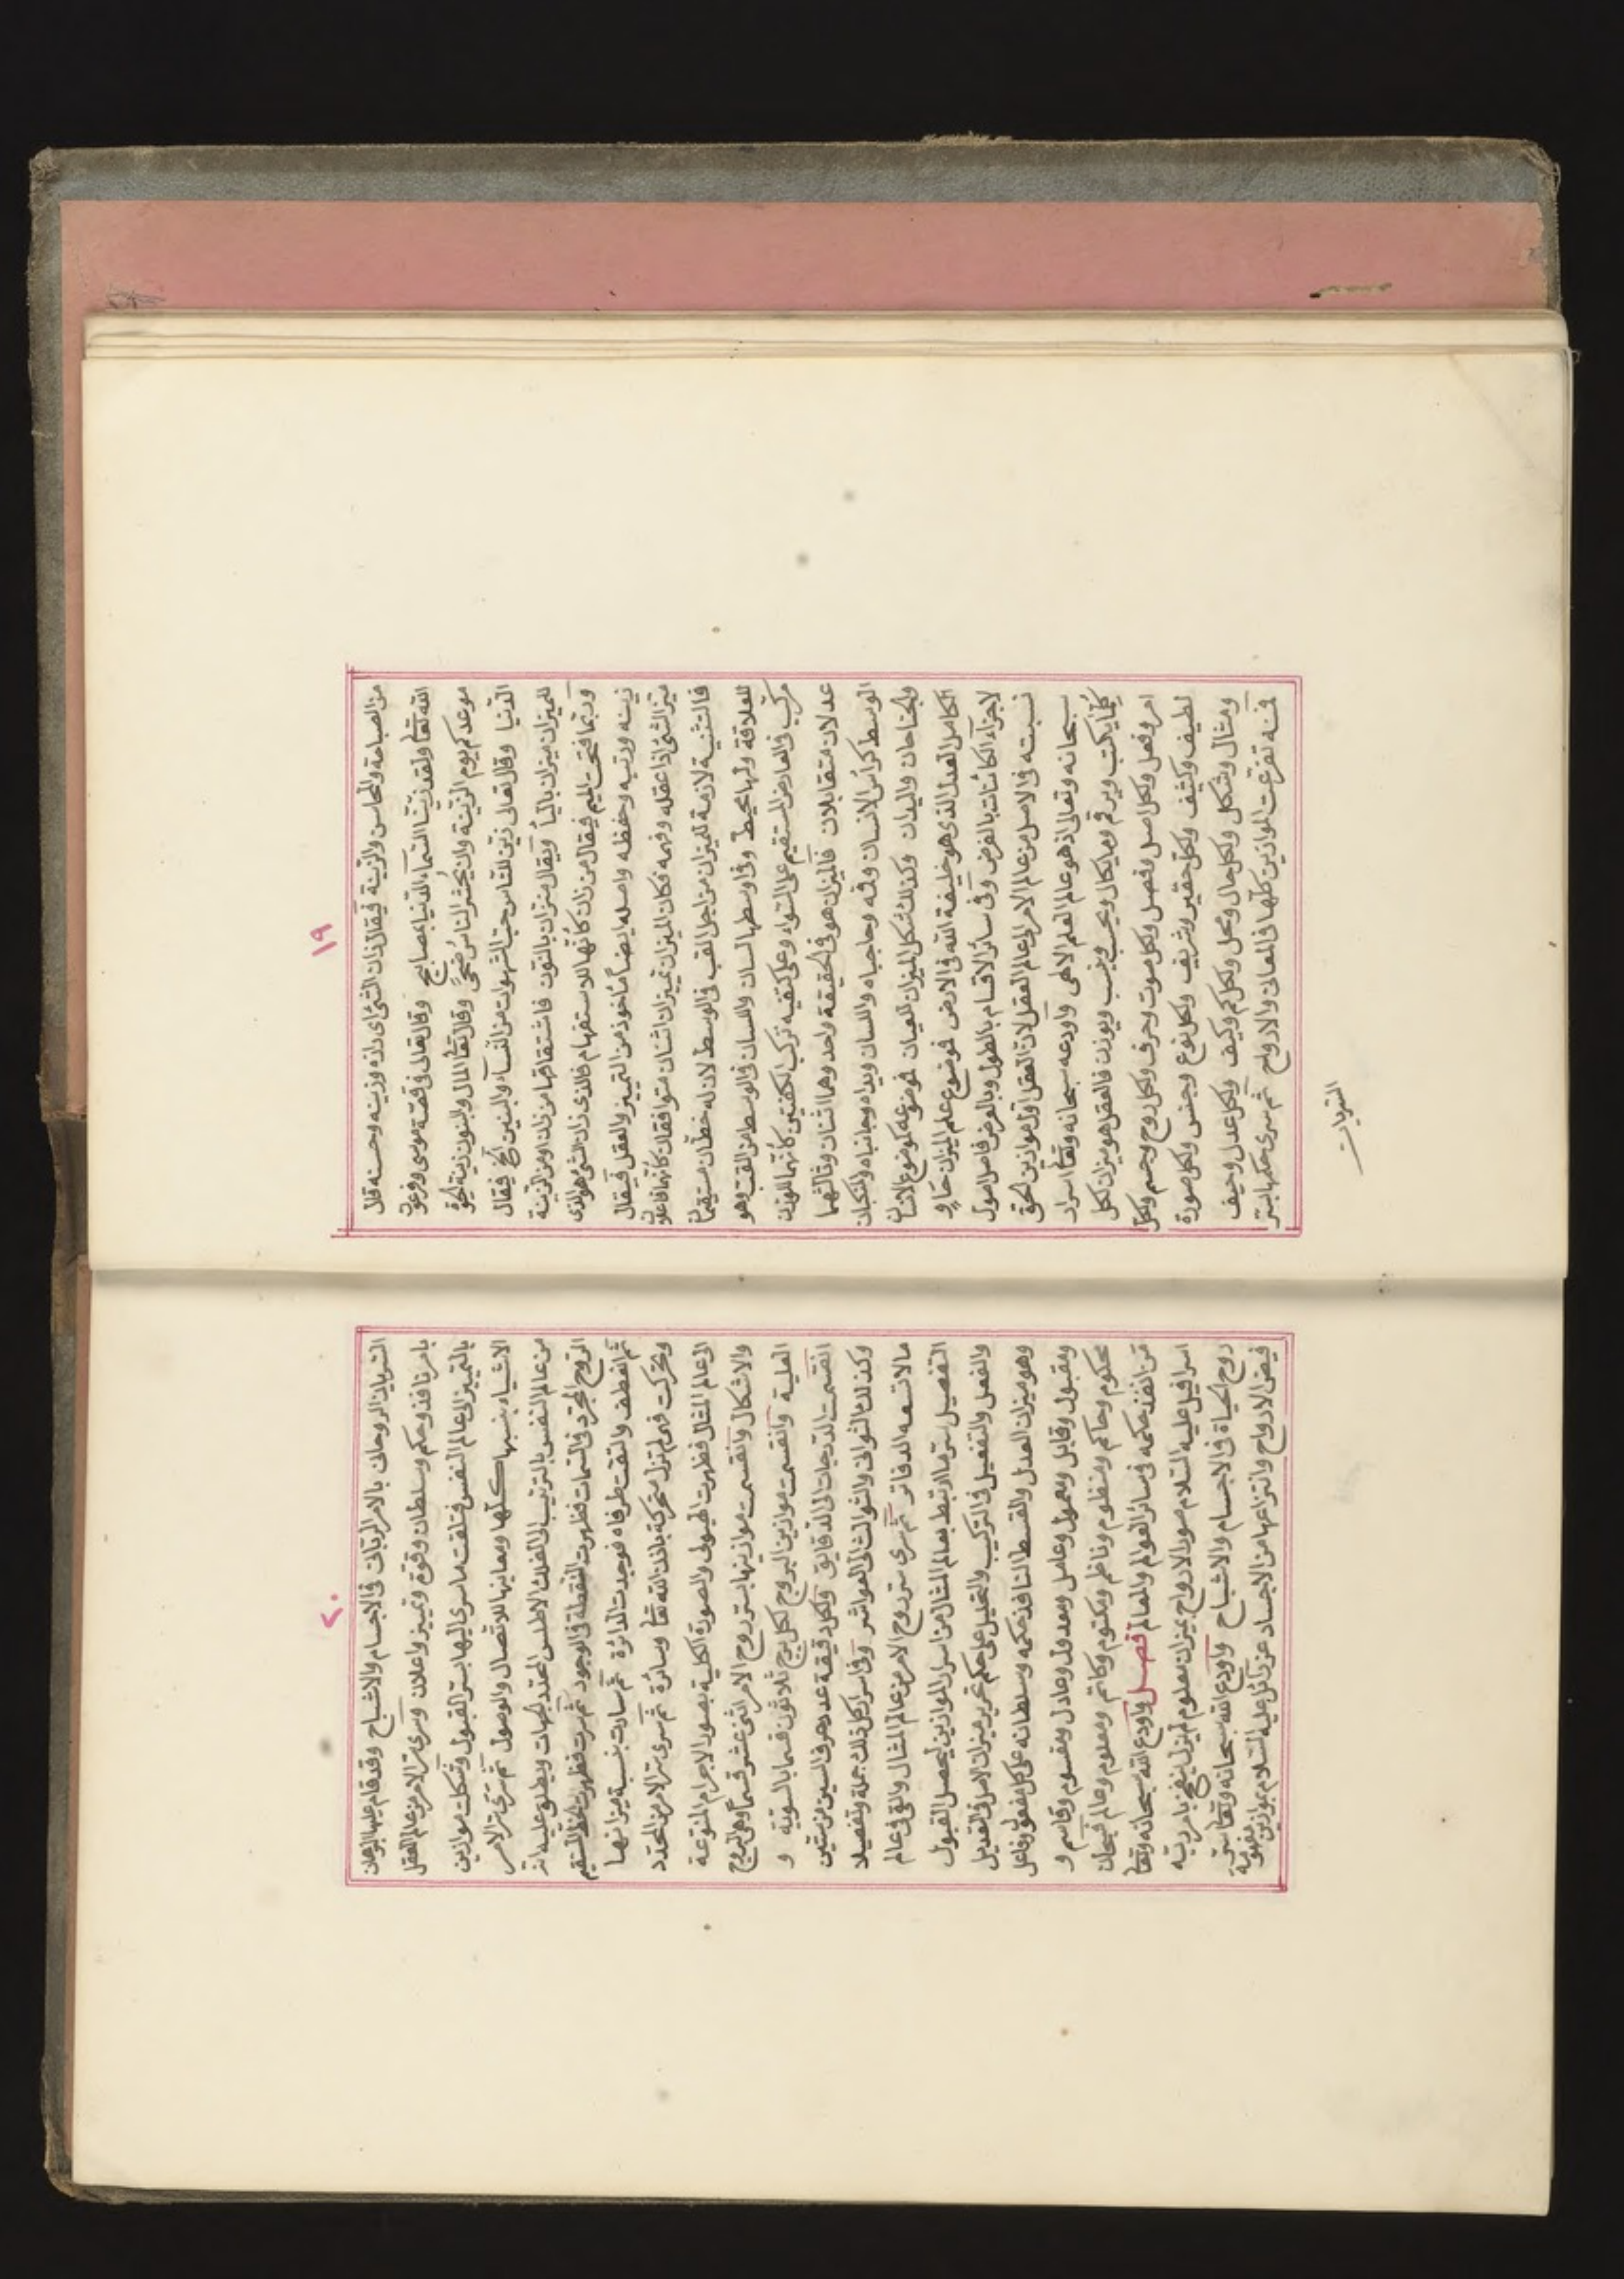 ١٩
من الصباحة والمحاسن والزينة فيقال زان الشئ اى زانه وزينه وحسنه قال
الله تعا ولقد زينا السماء الدنيا بمصابيح وقال تعالى فى قصة موسى وفرعون
موعدكم يوم الزينة وان يحشر الناس ضحى وقال تعا المال والبنون زينة الحيوة
الدنيا وقال تعالى زين للناس حب الشهوات من النساء والبنين الخ فيقال
للميزان ميزان بالياء ويقال منزان بالنون فاشتقاقها من زان او من الزينة
وربما فتحت الميم فيقال من زان كانها للاستفهام فالذى زان الشئ هو الذى
زينه ورتبه وحفظه واصله ايضا مأخوذ من التمييز والعقل فيقال
ميز الشئ اذا عقله وفهمه فكان الميزان تمييزان اثنان متوافقان كانهما فاعلان
فالتثنية لازمة للميزان من اجل القب فى الوسط لان له خطان مستقيمان
للعلاقة ولها محيط وفى اوسطها لسان واللسان فى الوسط من القب وهو
مركب فى العارض المستقيم على السواء وعلى كتفيه تركب الكفتين كانهما للوزن
عدلان متقابلان فالميزان هو فى الحقيقة واحد وهما اثنان وثالثهما
الوسط كرأس الانسان وفمه وحاجباه واللسان ويداه وجانباه والمنكبان
والجناحان واليدان وكذلك شكل الميزان للعيان فموضوعه كموضوع الانسان
الكامل العدل الذى هو خليفة الله فى الارض فموضوع علم الميزان حاو
لاجزاء الكائنات بالفرض وفى سائر الاقسام بالطول وبالعرض فاصل اصول
نسبته فى الاصل من عالم الامر الى عالم العقل لان العقل اول موازين الحق
سبحانه وتعالى اذ هو عالم العلم الالهى واودعه سبحانه وتعا اسرار
كلما يكتب ويرقم وما يكال ويحسب وينسب ويوزن فالعقل هو ميزان لكل
امر وفعل ولكل اصل وفصل ولكل صوت وحرف ولكل روح وجسم ولكل
لطيف وكثيف ولكل حقير وشريف ولكل نوع وجنس ولكل صورة
ومثال وشكل ولكل حال ومحل ولكل كم وكيف ولكل عدل وحيف
فمنه تفرعت الموازين كلها فى المعانى والارواح ثم سرى حكمها بسر
السريات
٢٠
السريان الروحانى بالامر الربانى فى الاجسام والاشباح وقد قام عليها البرهان
بامر نافذ وحكم وسلطان وقوة وتمييز واعلان وسرى سر الامر من عالم العقل
بالتمييز الى عالم النفس فتلقت ما سرى اليها بسر القبول وشكلت موازين
الاشياء بنسبها كلها ومعاينها للاتصال والوصول ثم سرى سر الامر
من عالم النفس بالترتيب الى الفلك الاطلس المحدد للجهات ويطلق عليه انه
الروح المجرد فى السمات فظهرت النقطة فى الوجود ثم سرت فظهرت الخط المستقيم
ثم انعطف والتقت طرفاه فوجدت الدائرة ثم سارت بنسبة ميزانها
وتحركت فهى لم تزل متحركة باذن الله تعا وسائرة ثم سرى سر الامر من المحدد
الى عالم المثال فظهرت الهيولى والصورة الكلية بصور الاجرام المتنوعة
والاشكال وانقسمت موازينها بسر روح الامر اثنى عشر قسما وهى البروج
العلية وانقسمت موازين البروج لكل برج ثلاثون قسما بالسوية و
انقسمت الدرجات الى الدقايق ولكل دقيقة عدد حرف السين من ستين
وكذلك الثوانى والثوالث الى العواشر وفى اسرار كل ذلك جملة وتفصيلا
ما لا تسعه الدفاتر ثم سرى سر روح الامر من عالم المثال والقى فى عالم
التفصيل سر ما ارتبط بعالم المثال من اسرار الموازين ليحصل القبول
والفعل والتفعيل فى التركيب والتحليل على حكم تحرير ميزان الامر فى التعديل
وهو ميزان العدل والقسط النافذ حكمه وسلطانه على كل مفعول وفاعل
ومقبول وقابل ومعمول وعامل ومعدول وعادل ومقسوم وقاسم و
محكوم وحاكم ومنظوم وناظم ومكتوم وكاتم ومعلوم وعالم فسبحان
من انفذ حكمه فى سائر العوالم والمعالم فصل واودع الله سبحانه وتعا
اسرافيل عليه السلام صور الارواح بميزان معلوم لم يزل ينفخ بامر ربه
روح الحياة فى الاجسام والاشباح واودع الله سبحانه وتعا سر
قبض الارواح وانتزاعها من الاجساد عزرائيل عليه السلام بموازين مفهومة